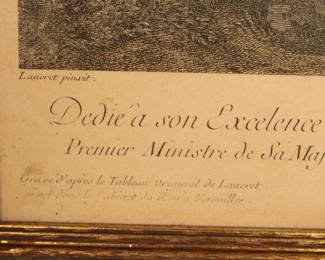 Lancret pinxit.
Dedié a son Excelence
Premier Ministre de Sa Maj
Gravé d'après le Tableau original de Lancret
dans le Cabinet du Roi a Versailles.